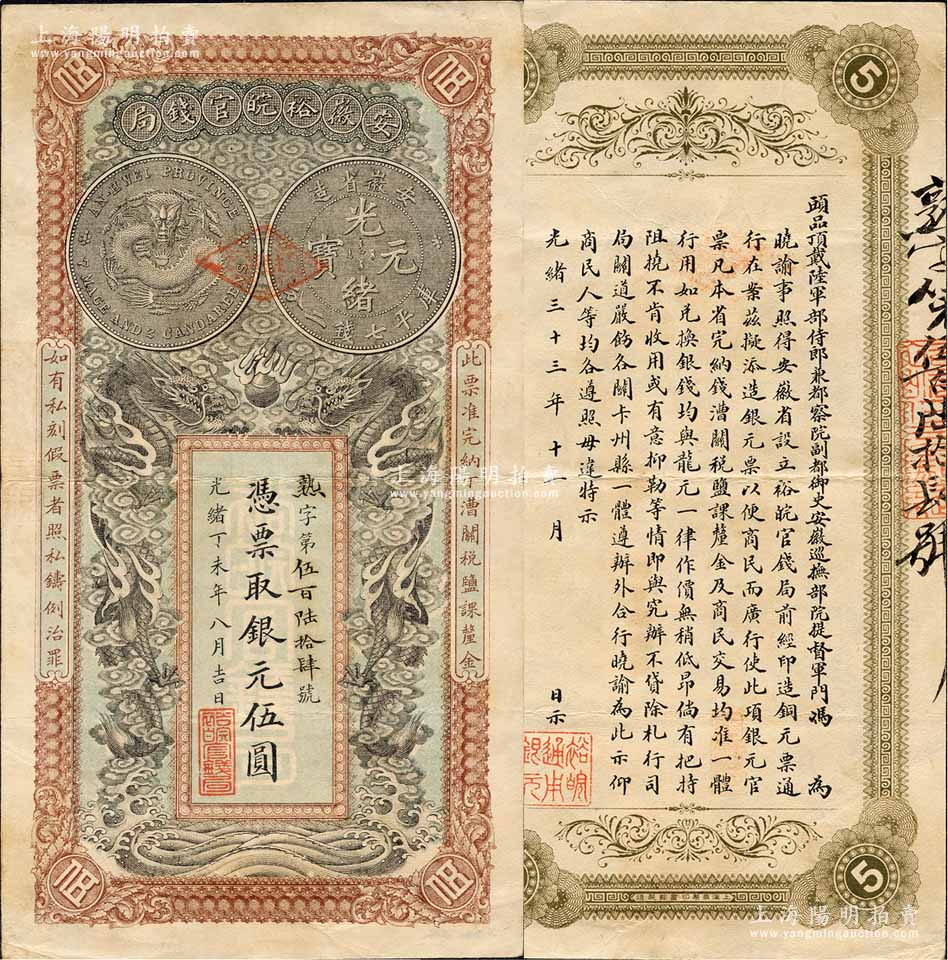 上海陽明拍賣
www.yangmingauction.com
伍
伍
安徽裕皖官錢局
AN-HWEI PROVINCE
7 MACE AND 2 CANDAREENS
安徽省造
光緒元寶
庫平七錢二分
此票准完納丁漕關稅鹽課釐金
如有私刻假票者照私鑄例治罪
熱字第伍百陸拾肆號
憑票取銀元伍圓
光緒丁未年八月吉日
上海陽明拍賣
www.yangmingauction.com
伍
伍
5
頭品頂戴陸軍部侍郎兼都察院副都御史安徽巡撫部院提督軍門馮 為
曉諭事照得安徽省設立裕皖官錢局前經印造銅元票通
行在案茲擬添造銀元票以便商民而廣行使此項銀元官
票凡本省完納錢漕關稅鹽課釐金及商民交易均准一體
行用如兌換銀錢均與龍元一律作價無稍低昂倘有把持
阻撓不肯收用或有意抑勒等情即與究辦不貸除札行司
局關道嚴飭各關卡州縣一體遵辦外合行曉諭為此示仰
商民人等均各遵照毋違特示
光緒三十三年十一月 日示
裕皖通用銀元
5
上海陽明拍賣
www.yangmingauction.com